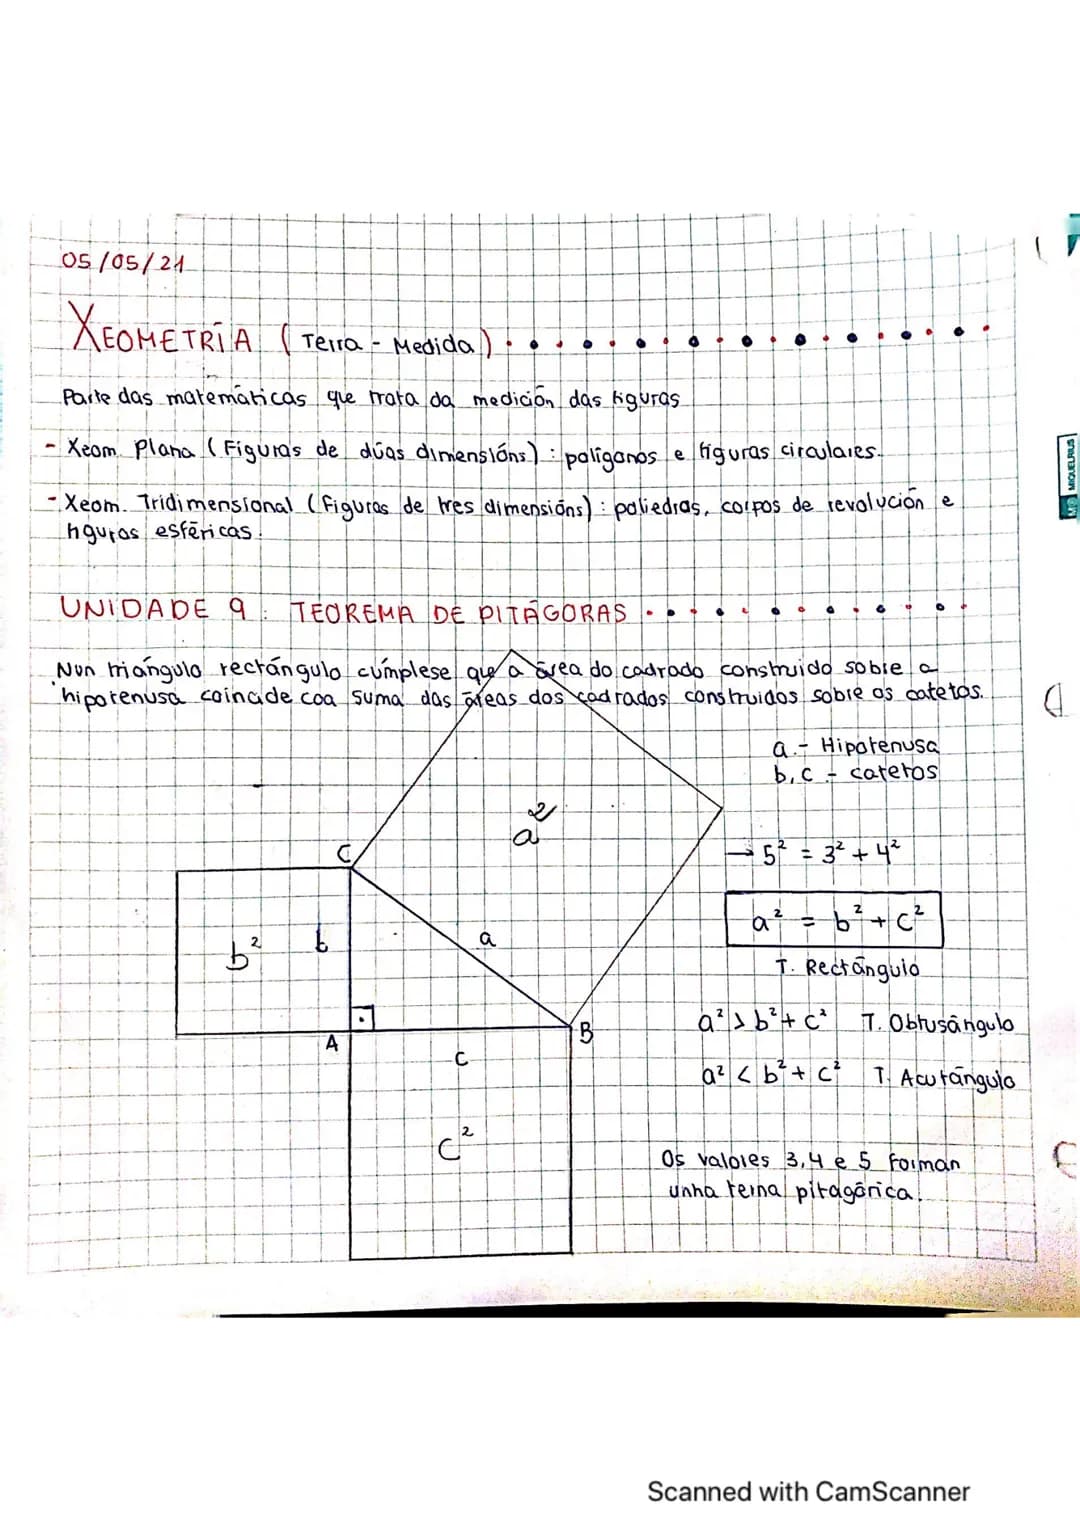 05/05/21
XEOMETRÍA (Terra - Medida)
Parte das matemáticas que trata da medición das figuras
- Xeom. Plana (Figuras de dúas dimensións): polígonos e figuras circulares.
- Xeom. Tridimensional (Figuras de tres dimensións): poliedros, corpos de revolución e
figuras esféricas.
UNIDADE 9: TEOREMA DE PITÁGORAS
Nun triángulo rectángulo cúmplese que a área do cadrado construido sobre a
hipotenusa coincide coa suma das áreas dos cadrados construidos sobre os catetos.
a.- Hipotenusa
b, c - catetos
a²
C
→ 5² = 3² + 4²
a² = b² + c²
b²
b
a
T. Rectángulo
a² > b² + c² T. Obtusángulo
A
B
c
a² < b² + c² T. Acutángulo
c²
Os valores 3, 4 e 5 forman
unha terna pitagórica.
MIQUELRIUS
Scanned with CamScanner